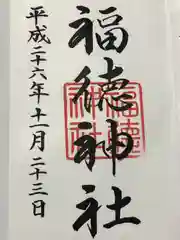 福徳神社
平成二十六年十一月二十三日